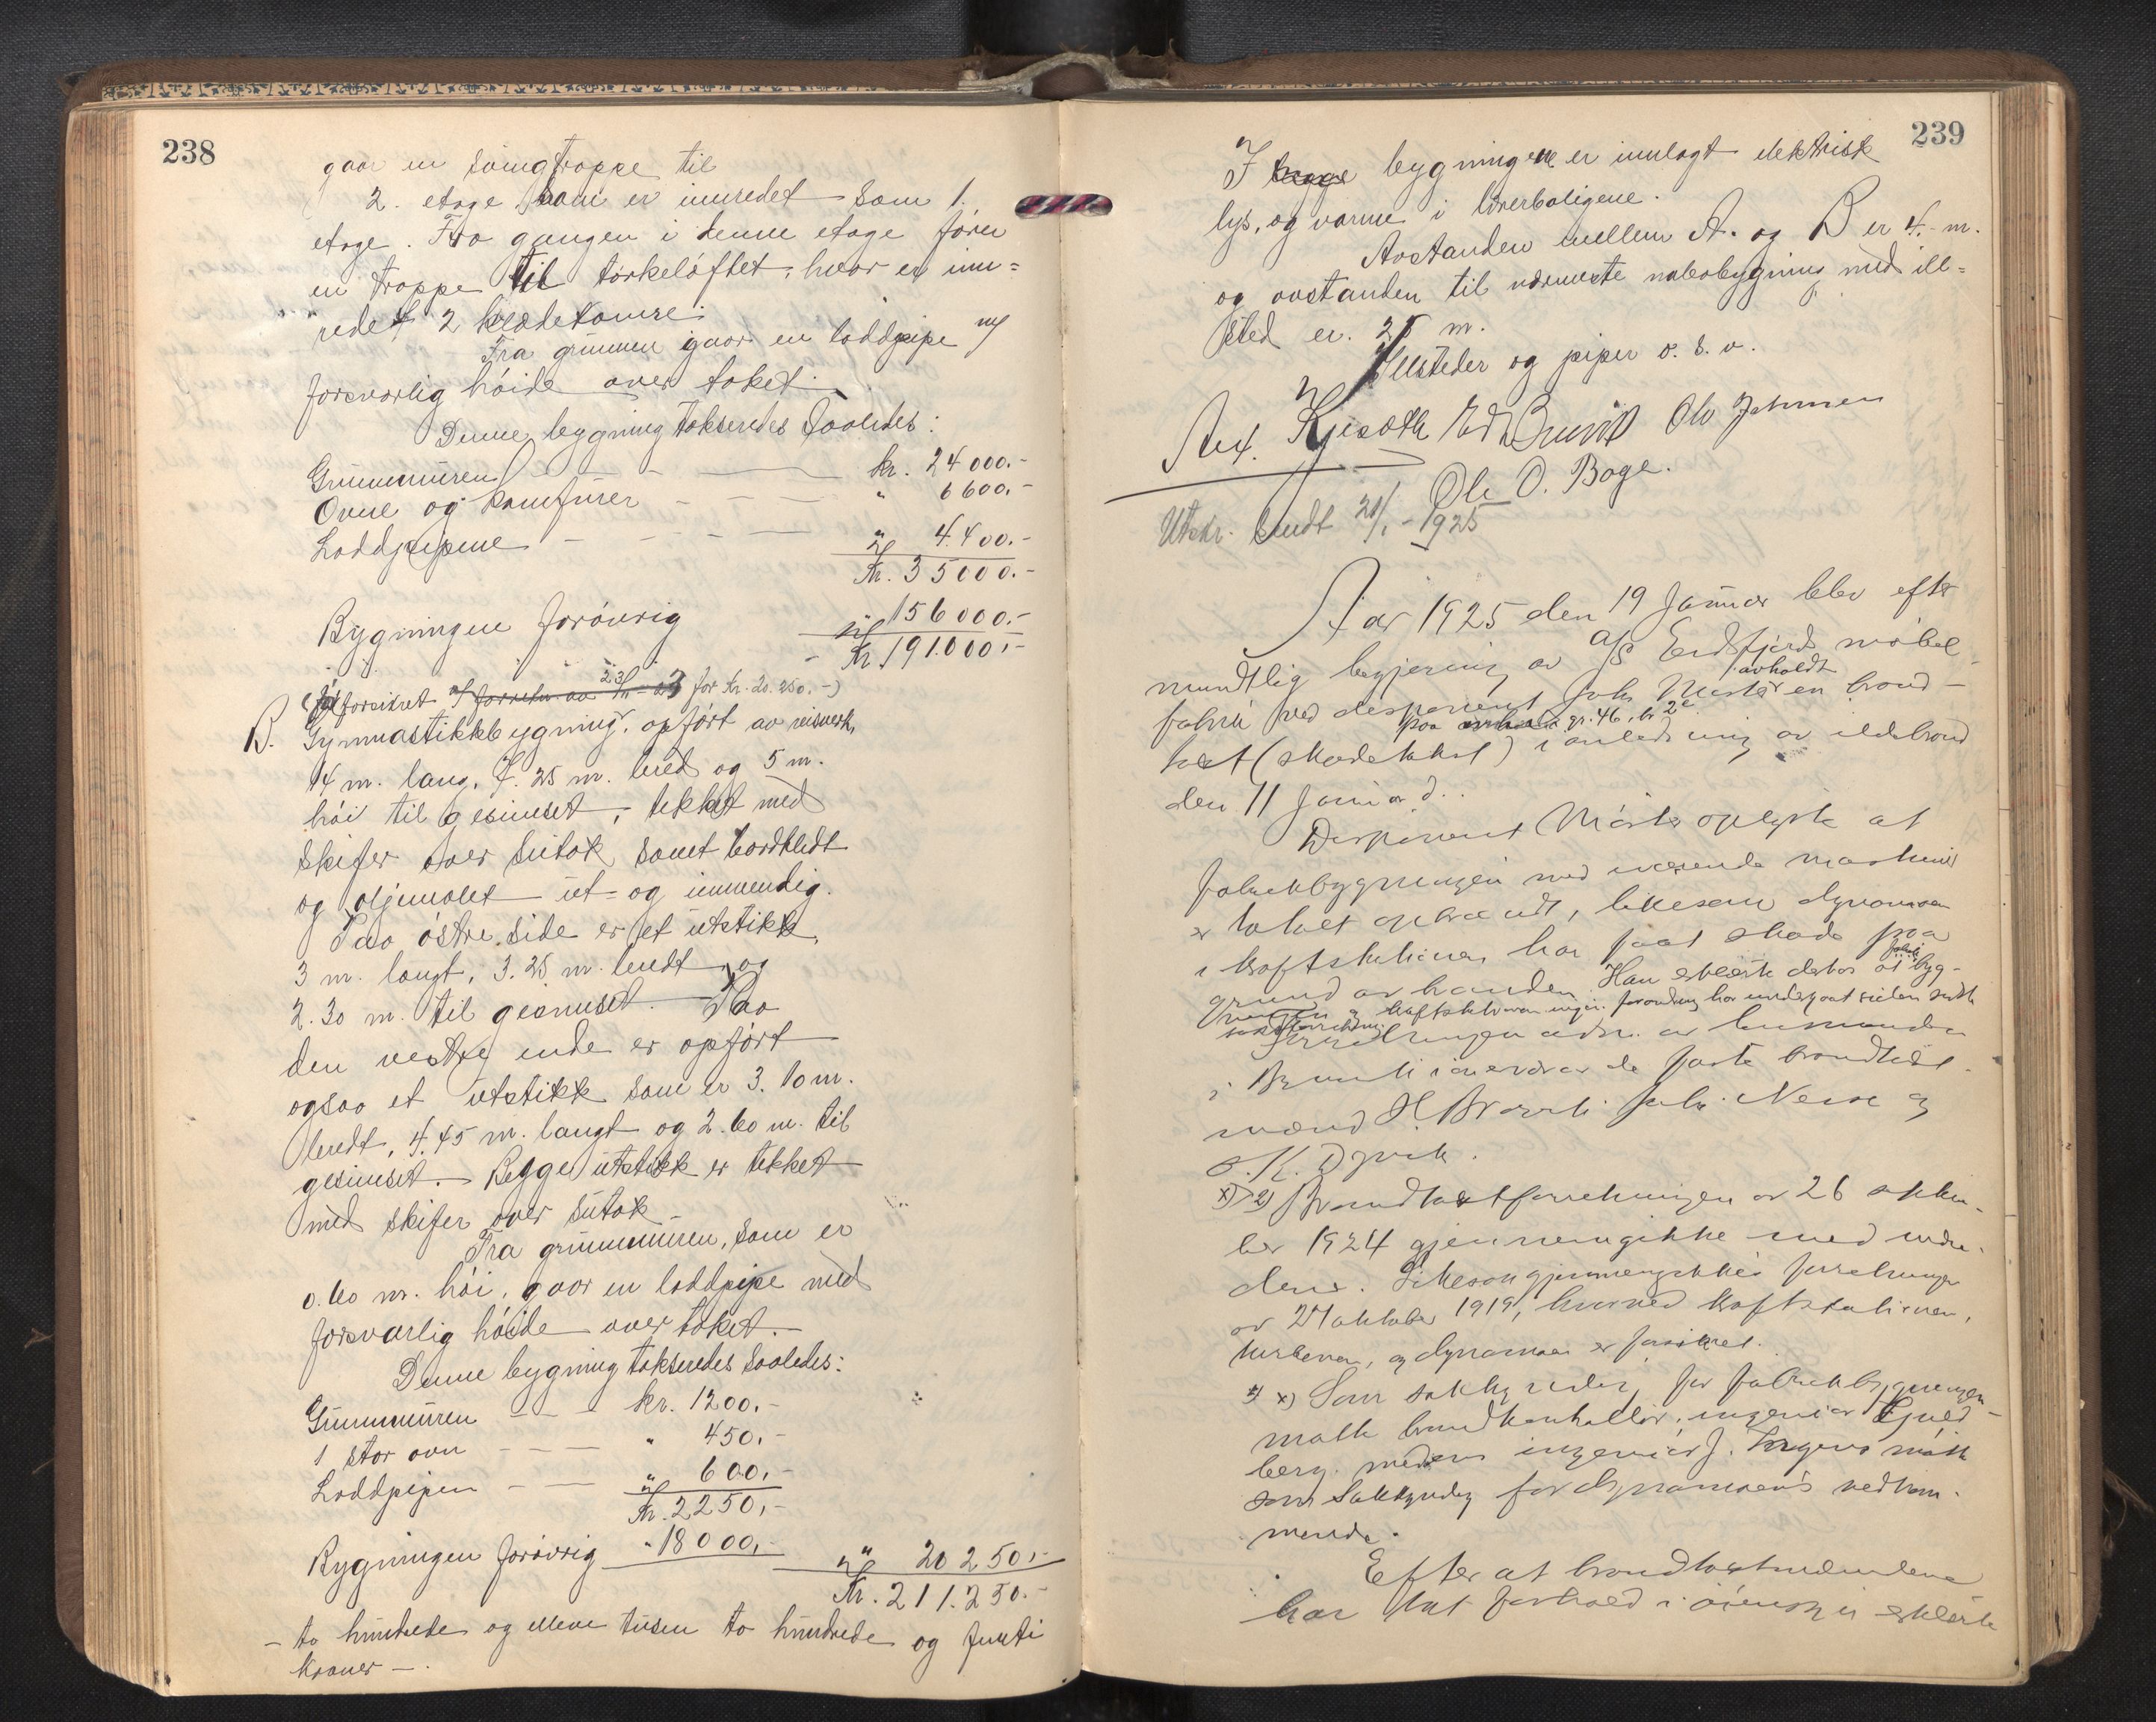 238
gaar en svingtrappe til
2. etage som er innredet som 1.
etage. Fra gangen i denne etage fører
en trappe til tørkeloftet, hvor er inn=
redet 2 klædekamre.
Fra grunnen gaar en loddpipe
forsvarlig høide over taket.
Denne bygning takseredes saaledes:
Grunnmuren — — kr. 24000.-
Ovne og komfurer — — " 6600.-
Loddpipene — — — " 4.400.-
Kr. 35000.-
Bygningen forøvrig " 156000.-
Kr. 191.000.-
for Kr. 20.250.-)
B. Gymnastikkbygning, opført av reisverk,
14 m. lang, 7.25 m. bred og 5 m.
høi til gesimset, tekket med
skifer over sutak samt bordklædt
og oljemalet ut- og innvendig.
Paa østre side er et utstikk,
3 m. langt, 3.25 m. bredt og
2.30 m. til gesimset. Paa
den vestre ende er opført
ogsaa et utstikk som er 3.10 m.
bredt, 4.45 m. langt og 2.60 m. til
gesimset. Begge utstikk er tekket
med skifer over sutak
Fra grunnmuren, som er
0.60 m. høi, gaar en loddpipe med
forsvarlig høide over taket.
Denne bygning takseredes saaledes:
Grunnmuren — — kr. 1200.-
1 stor ovn — — — " 450.-
Loddpipen — — " 600.-
Kr. 2250.-
Bygningen forøvrig " 18000.- " 20250.-
Kr. 211.250.-
- to hundrede og elleve tusen to hundrede og femti
kroner —.
239
I bygningene er innlagt elektrisk
lys, og varme i lærerboligene.
Avstanden mellem A. og B er 4. m.
og avstanden til nærmeste nabobygning med ill=
sted er. 25 m.
Illsteder og piper o. s. v.
Ole O. Boge.
Utskr. sendt 21/1 - 1925
Aar 1925 den 19 Januar blev efter
mundtlig begjering av A/S Eidsfjord møbel-
fabrik ved disponent Joh. Mæster avholdt en brand-
paa gr. 46, br 2
takst (skadetakst) i anledning av ildebrand
den 11 Januar d..
Disponent Mæster oplyste at
fabrikbygningen med iværende maskiner
er totalt opbrændt, likesom dynamoen
i kraftstationen har faat skade paa
grund av branden. Han erklærte derhos at fabrik byg-
ningen og kraftstationen ingen forandring har undergaat siden sidste
Forretningen adm. av lensmanden
i overvær av de faste brandtakst-
mænd
Brandtakstforretningen av 26 septem-
ber 1924 gjennemgikkes med vedkom-
dene. Likesaa gjennemgikkes forretningen
av 27 oktober 1919, hvorved kraftstationen,
turbinen, og dynamoen er forsikret.
x) Som sakkyndig for fabrikbygningen
møtte brandkontrollør, ingeniør
berg. medens ingeniør J. møtte
som sakkyndig for dynamoens vedkom-
mende.
Efter at brandtakstmændene
har tat forhold i øiensyn erklærte